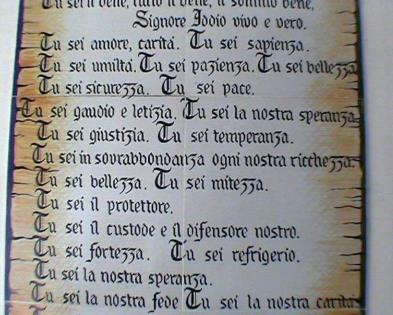 Tu sei il bene, tutto il bene, il sommo bene,
Signore Iddio vivo e vero.
Tu sei amore, carità. Tu sei sapienza.
Tu sei umiltà. Tu sei pazienza. Tu sei bellezza
Tu sei sicurezza. Tu sei pace.
Tu sei gaudio e letizia. Tu sei la nostra speranza.
Tu sei giustizia. Tu sei temperanza.
Tu sei in sovrabbondanza ogni nostra ricchezza.
Tu sei bellezza. Tu sei mitezza.
Tu sei il protettore.
Tu sei il custode e il difensore nostro.
Tu sei fortezza. Tu sei refrigerio.
Tu sei la nostra speranza.
Tu sei la nostra fede Tu sei la nostra carità